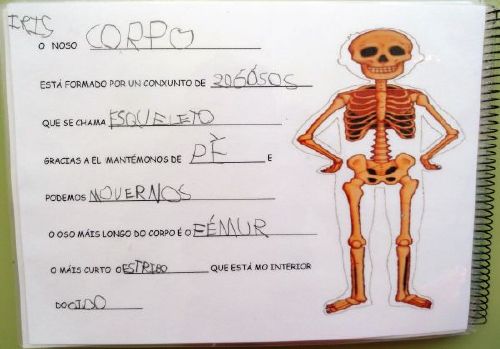 IRIS
O NOSO CORPO
ESTÁ FORMADO POR UN CONXUNTO DE 206ÓSOS
QUE SE CHAMA ESQUELETO
GRACIAS A EL MANTÉMONOS DE PÈ E
PODEMOS MOVERNOS
O OSO MÁIS LONGO DO CORPO É O FÉMUR
O MÁIS CURTO O ESTRIBO QUE ESTÁ MO INTERIOR
DO OIDO